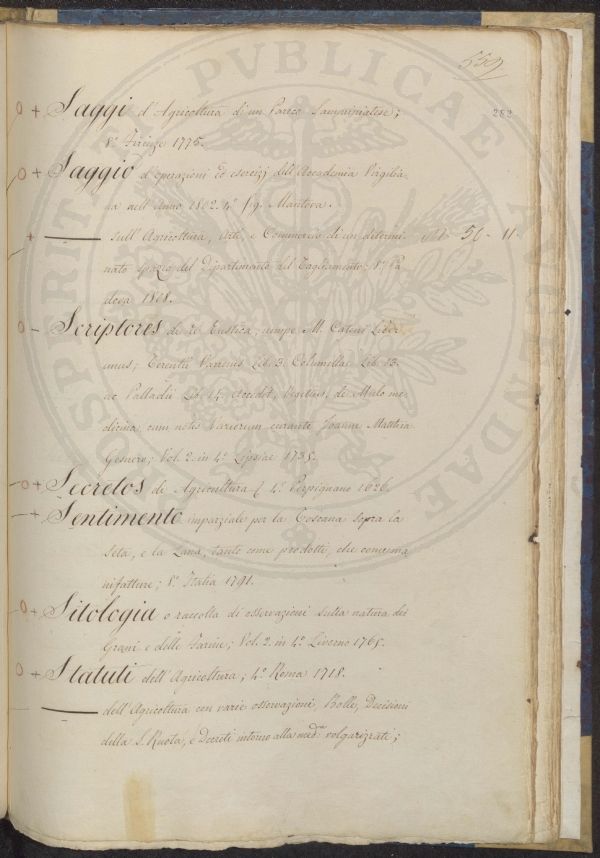 559
282
O + Saggi d'Agricoltura di un Paroco Samminiatese;
8.° Firenze 1775.
O + Saggio d'operazioni ed esercizj dell'Accademia Virgilia-
na nell'Anno 1802. 4.° fig. Mantova.
+ —— sull'Agricoltura, Arti, e Commercio di un determi- 50 - 11
nato spazio del Dipartimento del Tagliamento; 8.° Pa
dova 1808.
O - Scriptores de re Rustica; nimpe M. Catoni Liber
unus; Terentii Varronis Lib. 3. Columellae Lib. 13.
ac Palladii Lib. 14. Accedit, Vegetius, de Mulo me-
dicina, cum notis Variorum curante Joanne Matthia
Gesnero; Vol. 2. in 4.° Lipsiae 1735.
- O + Secretos de Agricultura 4.° Perpignano 1626.
- + Sentimento imparziale per la Toscana sopra la
Seta, e la Lana, tanto come prodotti, che come ma
nifatture; 8.° Italia 1791.
- O + Sitologia o raccolta di osservazioni sulla natura dei
Grani e delle Farine; Vol. 2. in 4.° Livorno 1765.
O + Statuti dell'Agricoltura; 4.° Roma 1718.
—— dell'Agricoltura con varie osservazioni, Bolle, Decisioni
della S. Ruota, e Decreti intorno alla med.ma volgarizzati;
PUBLICAE
AUGENDAE
PROSPERITATI